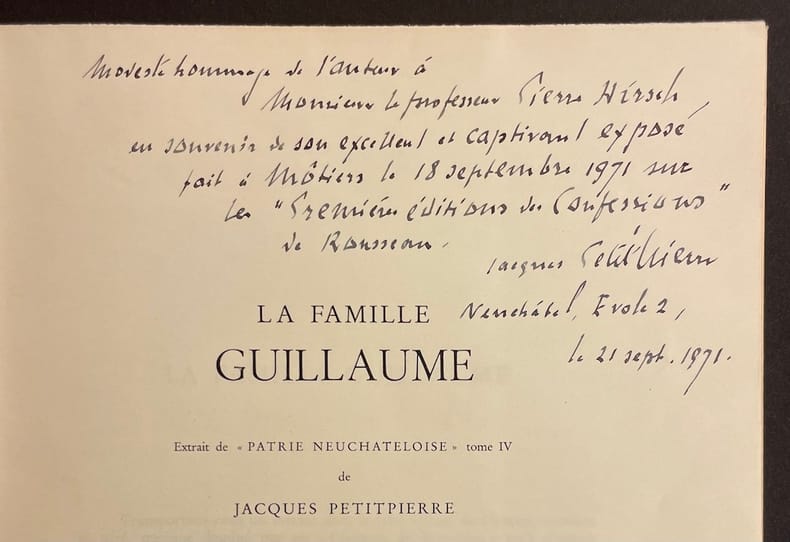 Modeste hommage de l'auteur à
Monsieur le professeur Pierre Hirsch,
en souvenir de son excellent et captivant exposé
fait à Môtiers le 18 septembre 1971 sur
les "Premières éditions des Confessions"
de Rousseau.
Jacques Petitpierre
Neuchâtel, Evole 2,
le 21 sept. 1971.
LA FAMILLE
GUILLAUME
Extrait de « PATRIE NEUCHATELOISE » tome IV
de
JACQUES PETITPIERRE